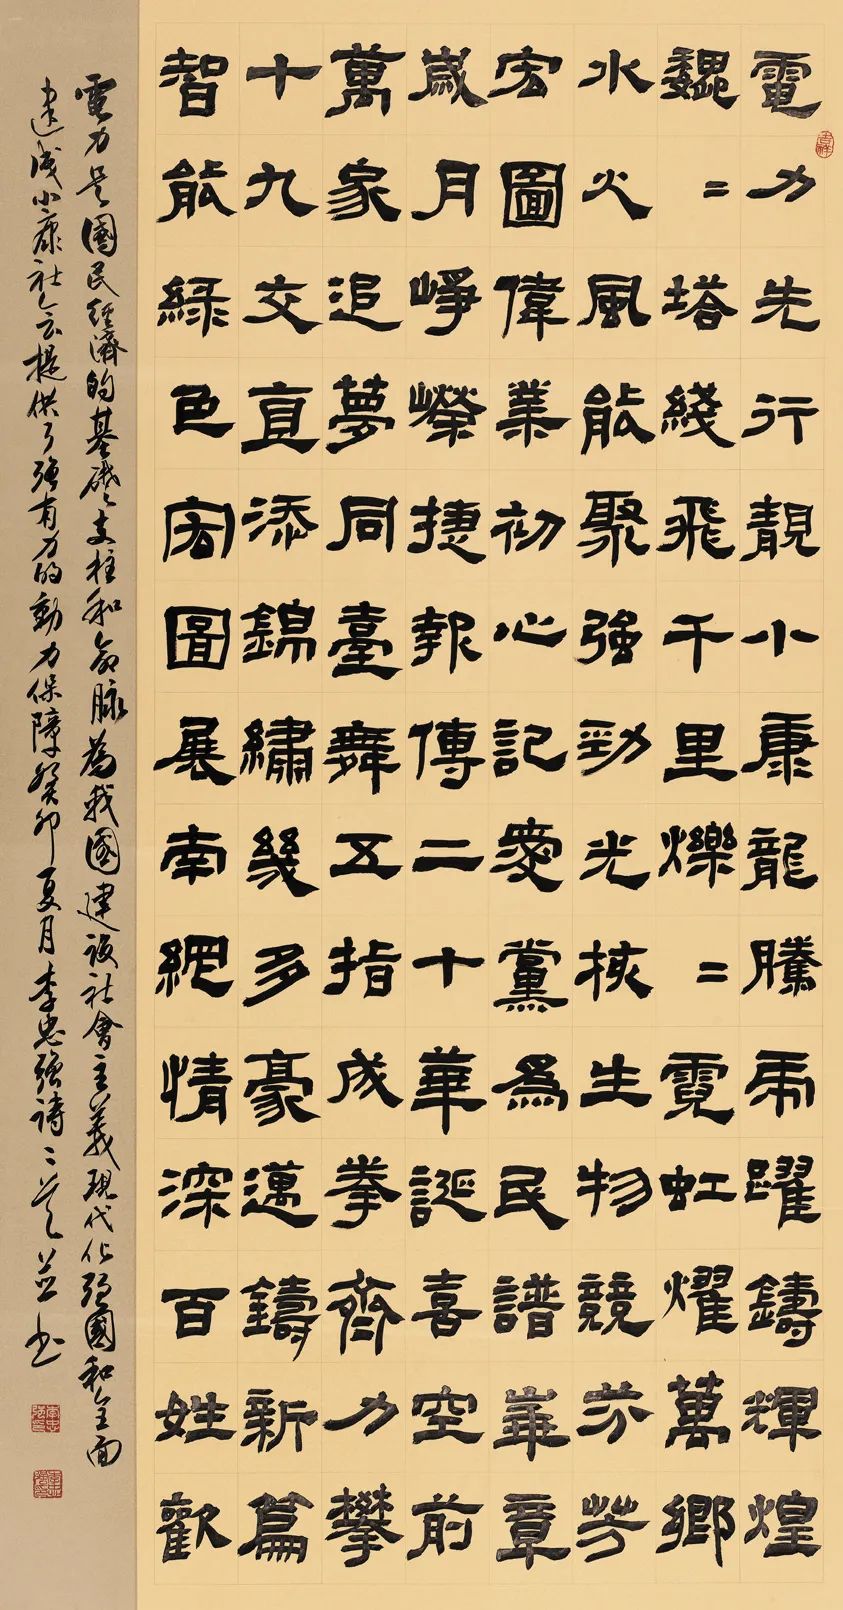 電力先行靚小康龍騰虎躍鑄輝煌
巍=塔綫飛千里爍=霓虹耀萬鄉
水火風能聚強勁光核生物競芬芳
宏圖偉業初心記愛黨為民譜華章
歲月崢嶸捷報傳二十華誕喜空前
萬象追夢同臺舞五指成拳齊力攀
十九交直添錦繡幾多豪邁鑄新篇
智能綠色宏圖展南網情深百姓歡
電力是國民經濟的基礎支柱和命脉為我國建設社會主義現代化强國和全面
建成小康社会提供了强有力的動力保障癸卯夏月李忠强詩並书